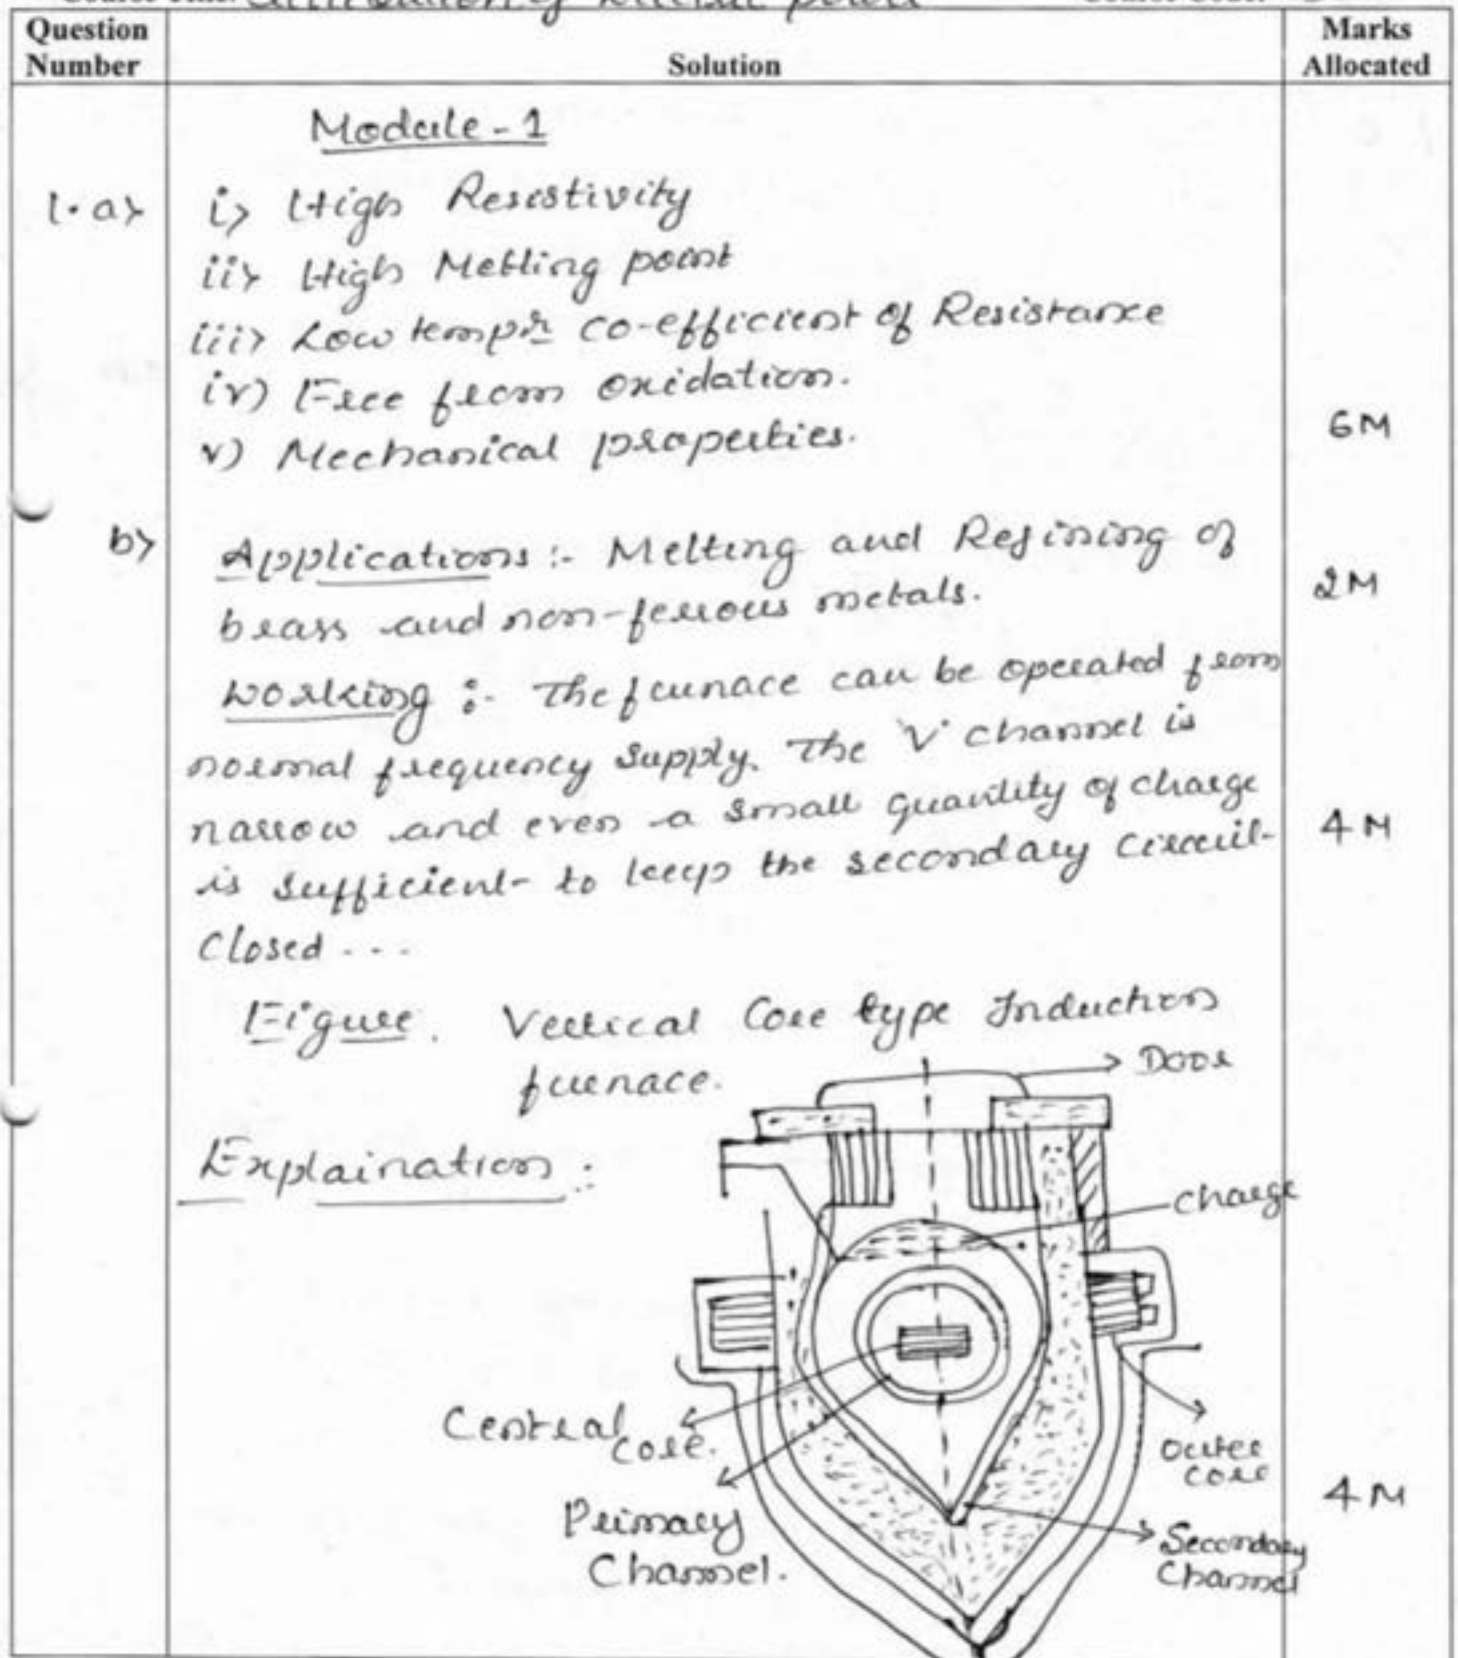 Utilisation of power
Question
Number
Solution
Marks
Allocated
Module - 1
1. a) i) High Resistivity
ii) High Melting point
iii) Low tempr co-efficient of Resistance
iv) Free from oxidation.
v) Mechanical properties.
6M
b) Applications :- Melting and Refining of
brass and non-ferrous metals.
2M
Working :- The furnace can be operated from
normal frequency supply. The 'V' channel is
narrow and even a small quantity of charge
4M
is sufficient to keep the secondary circuit
closed ...
Figure. Vertical Core type Induction
furnace.
Door
Explaination :
charge
Central core.
outer
core
4M
Primary
Channel.
Secondary
Channel